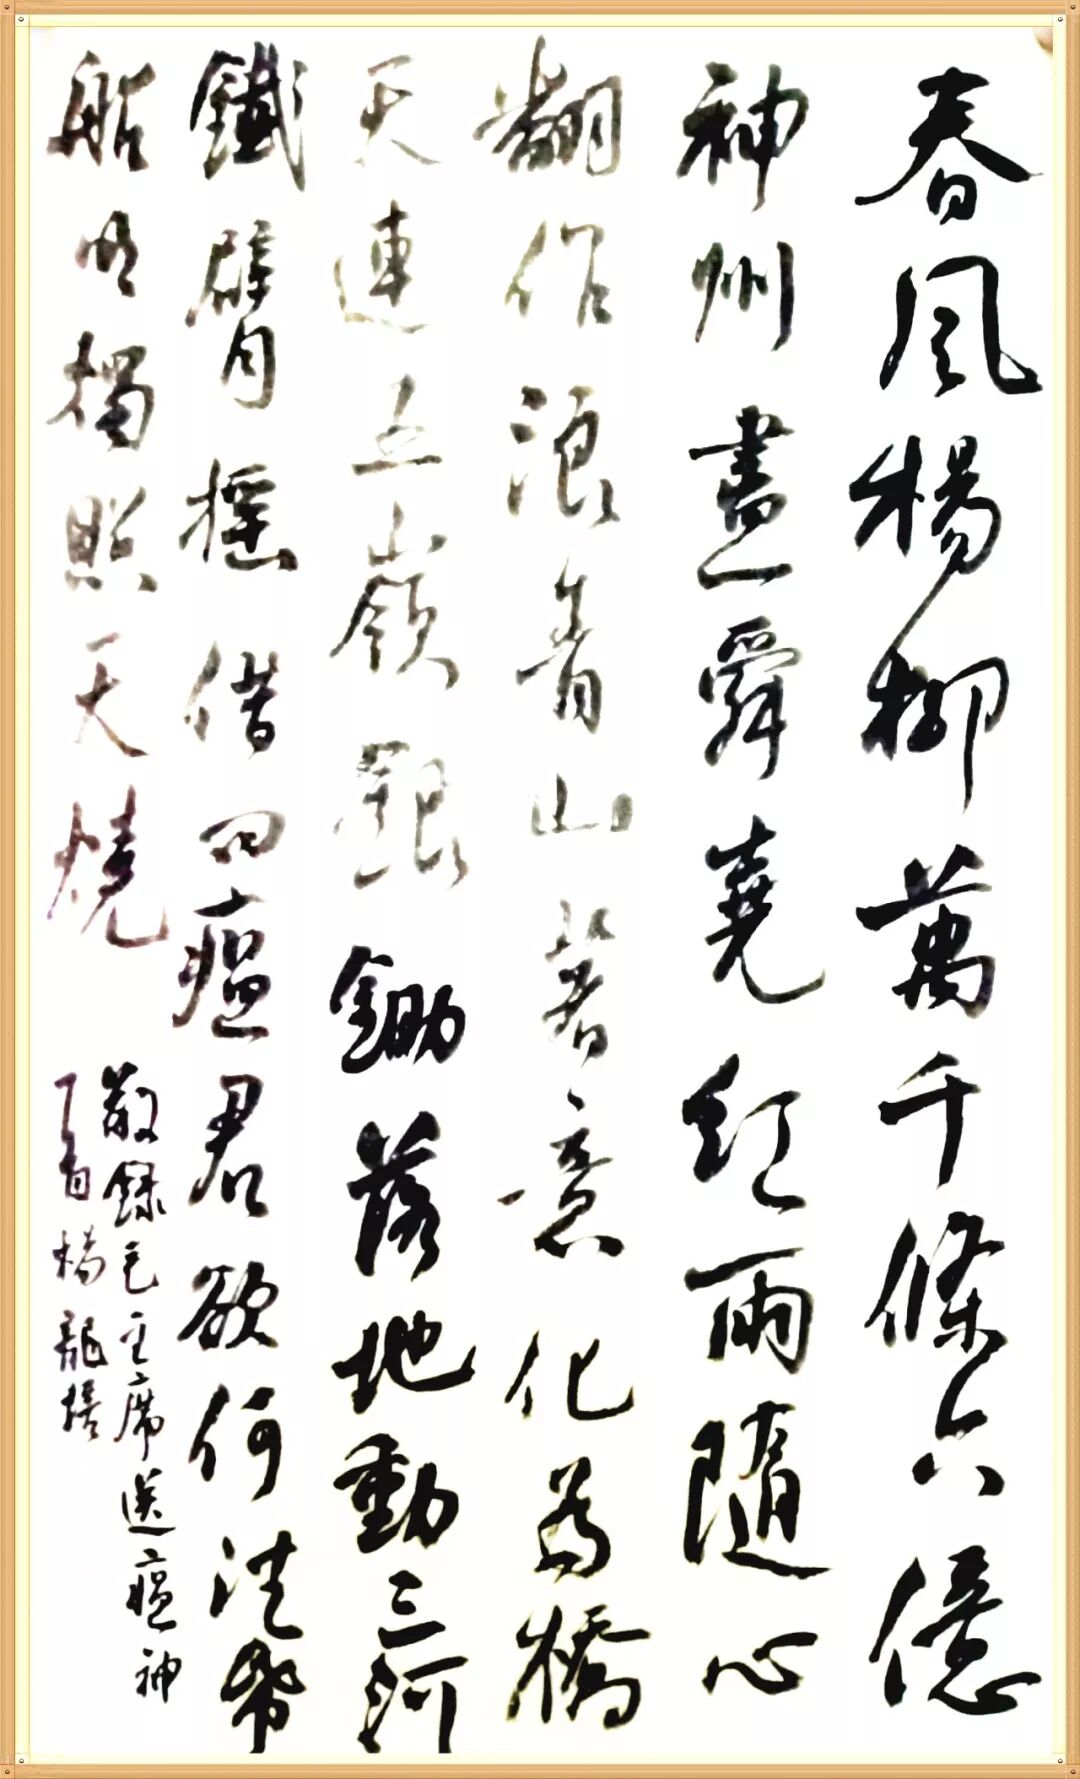 春風楊柳萬千條六億
神州盡舜堯紅雨隨心
翻作浪青山著意化為橋
天連五嶺銀鋤落地動三河
鐵臂搖借問瘟君欲何往帋
船明燭照天燒
敬錄毛主席送瘟神
丁酉楊龍